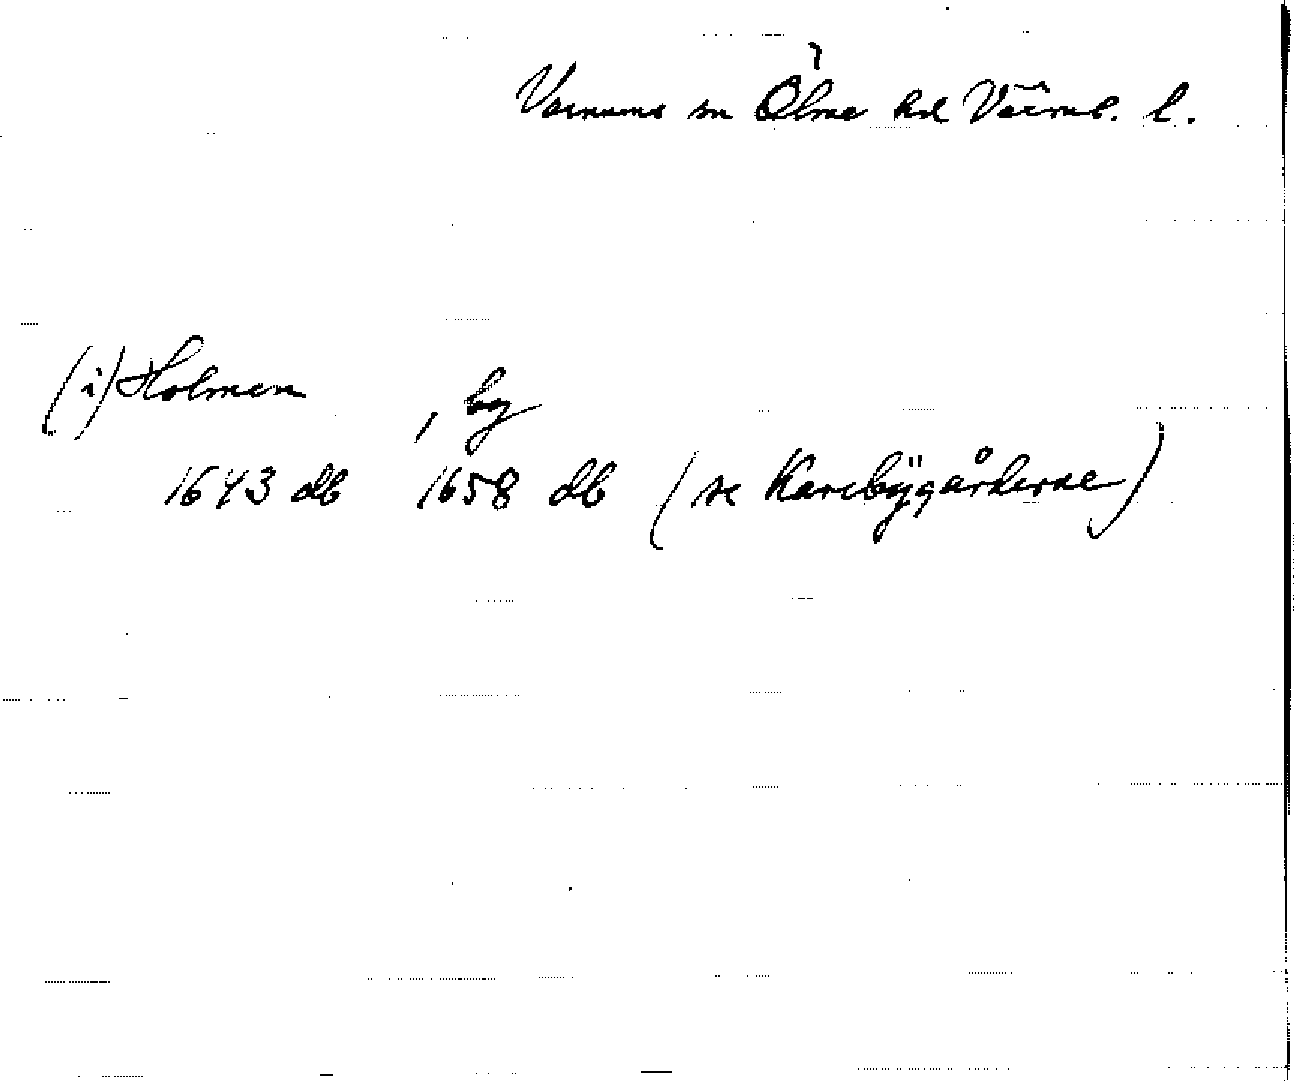 Varnums sn Ölme hd Värml. l.
(i) Holmen , by
1643 db 1658 db (se Karebÿgårderne)